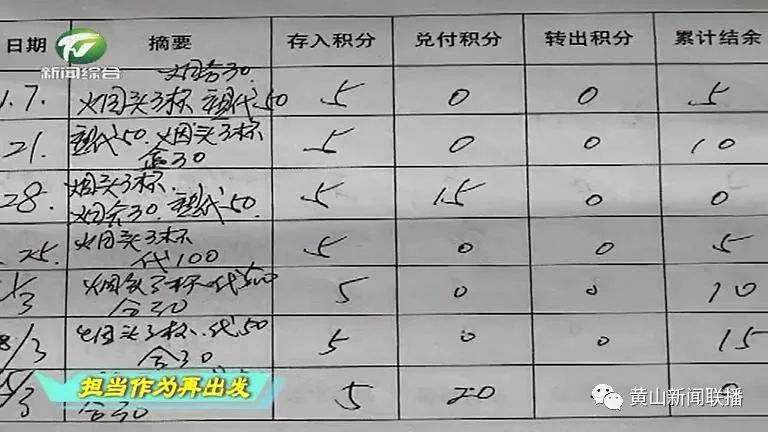 日期 摘要 存入积分 兑付积分 转出积分 累计结余
新闻综合
烟合30.
1.7. 烟头3杯 塑代50 5 0 0 5
21. 塑代50.烟头3杯 5 0 0 10
盒30
28. 烟头3杯. 5 15 0 0
烟合30.塑代50.
25. 烟头3杯 5 0 0 5
代100
/3 烟头3杯 代50 5 0 0 10
合30
8/3 烟头3杯.代50 5 0 0 15
合30
担当作为再出发
/3 合30 5 20 0
黄山新闻联播